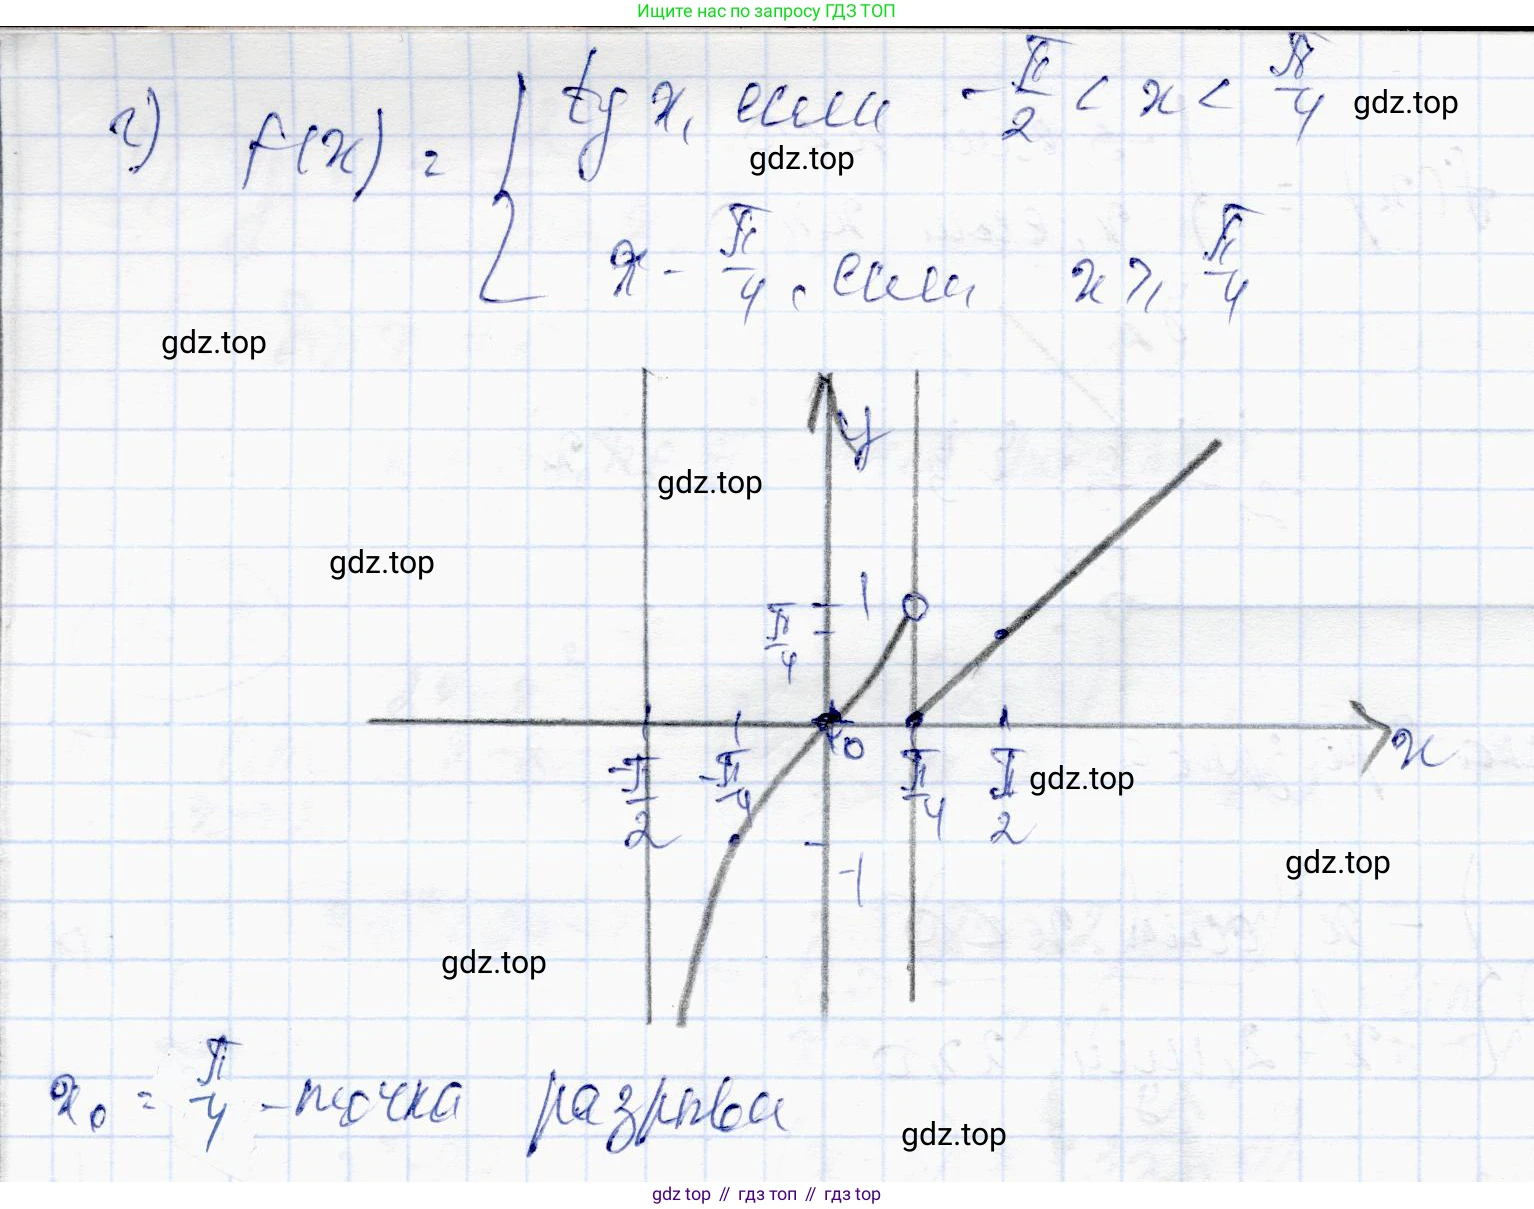 Ищите нас по запросу ГДЗ ТОП
г) f(x) = { tg x, если -π/2 < x < π/4
gdz.top
gdz.top
x - π/4, если x ⩾ π/4
gdz.top
y
gdz.top
gdz.top
1
π/4
0
x
-π/2
-π/4
π/4
π/2
gdz.top
-1
gdz.top
gdz.top
x₀ = π/4 - точка разрыва
gdz.top
gdz top // гдз топ // гдз top